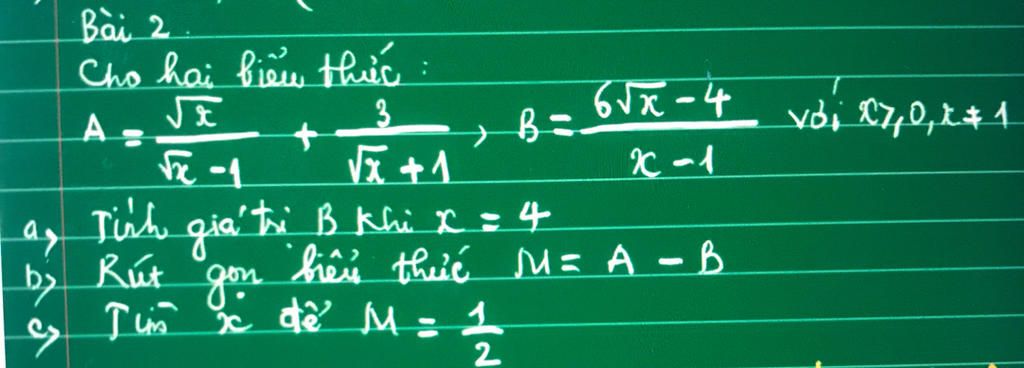 Bài 2.
Cho hai biểu thức :
A = √x / (√x - 1) + 3 / (√x + 1) , B = (6√x - 4) / (x - 1) với x ≥ 0, x ≠ 1
a, Tính giá trị B khi x = 4
b, Rút gọn biểu thức M = A - B
c, Tìm x để M = 1/2